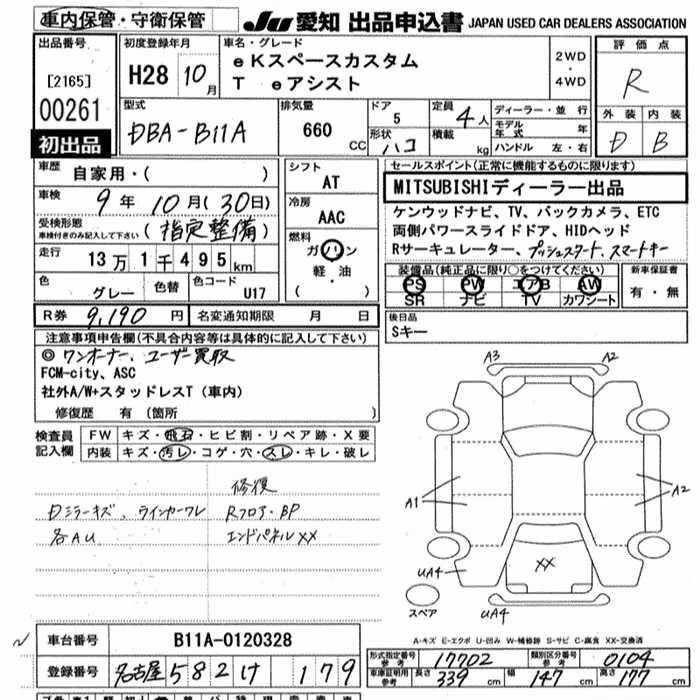 車内保管・守衛保管
JU 愛知 出品申込書 JAPAN USED CAR DEALERS ASSOCIATION
出品番号
[2165]
00261
初出品
初度登録年月
H28 10月
車名・グレード
eKスペースカスタム
T eアシスト
2WD
・
4WD
評価点
R
外装 内装
D B
型式
DBA-B11A
排気量
660 CC
ドア
5
形状
ハコ
定員
4人
積載
kg
ディーラー・並行
モデル年式 年
ハンドル 左・右
車歴
自家用・( )
車検
9年 10月(30日)
受検形態
車検付きのみ記入して下さい
(指定整備)
走行
13万1千495km
色
グレー
色替
色コード
U17
シフト
AT
冷房
AAC
燃料
ガソリン
軽・油
( )
セールスポイント(正常に機能するものに限ります)
MITSUBISHIディーラー出品
ケンウッドナビ、TV、バックカメラ、ETC
両側パワースライドドア、HIDヘッド
Rサーキュレーター、プッシュスタート、スマートキー
装備品(純正品に限り○をつけてください)
PS PW エアB AW
SR ナビ TV カワシート
新車保証書
有・無
R券 9,190円
名変通知期限 月 日
後日品
Sキー
注意事項申告欄(不具合内容等は具体的に記入して下さい)
◎ワンオーナー、ユーザー買取
FCM-city、ASC
社外A/W+スタッドレスT(車内)
修復歴 有(箇所 )
検査員記入欄
FW キズ・飛石・ヒビ割・リペア跡・X要
内装 キズ・汚レ・コゲ・穴・スレ・キレ・破レ
修復
Dミラーキズ、ラインカーワレ Rフロア・BP
各AU エンドパネルXX
A3 A2
A1 A2
XX
UA4
スペア UA4
A-キズ E-エクボ U-凹み W-補修跡 S-サビ C-腐食 XX-交換済
車台番号
B11A-0120328
登録番号
名古屋 582 け 179
形式指定番号
参考
17702
類別区分番号
参考
0104
車庫証明用
参考
長さ 339 cm 幅 147 cm 高さ 177 cm